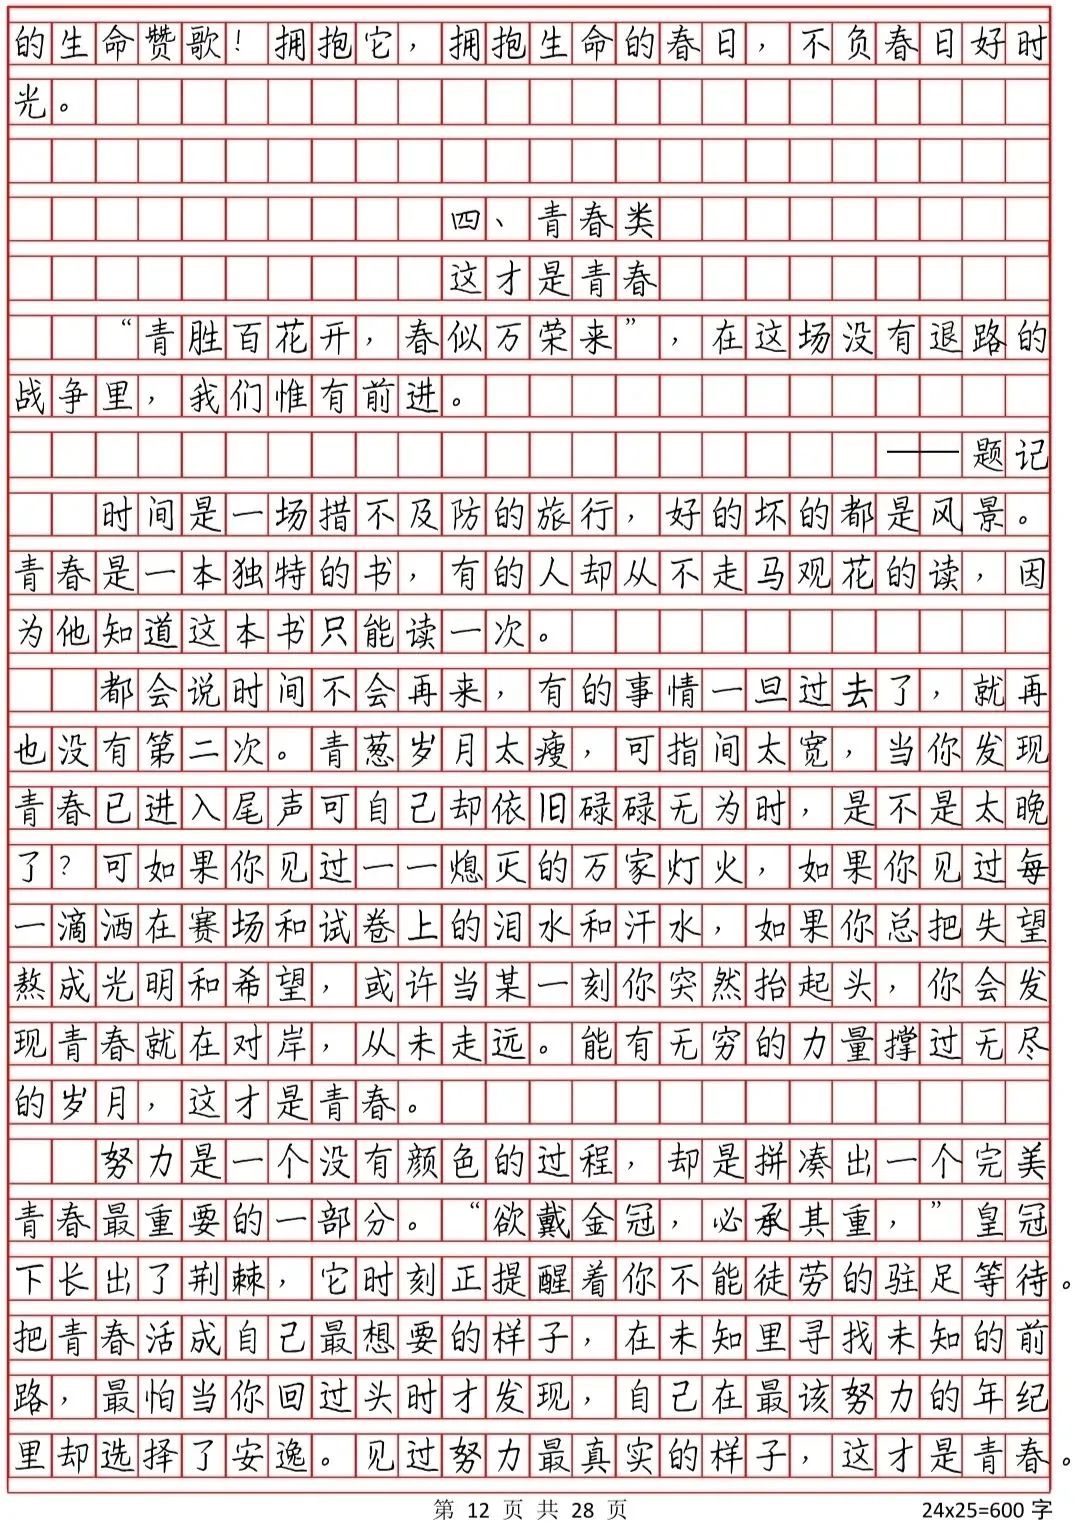 的生命赞歌！拥抱它，拥抱生命的春日，不负春日好时
光。
四、青春类
这才是青春
“青胜百花开，春似万荣来”，在这场没有退路的
战争里，我们惟有前进。
——题记
时间是一场措不及防的旅行，好的坏的都是风景。
青春是一本独特的书，有的人却从不走马观花的读，因
为他知道这本书只能读一次。
都会说时间不会再来，有的事情一旦过去了，就再
也没有第二次。青葱岁月太瘦，可指间太宽，当你发现
青春已进入尾声可自己却依旧碌碌无为时，是不是太晚
了？可如果你见过一一熄灭的万家灯火，如果你见过每
一滴洒在赛场和试卷上的泪水和汗水，如果你总把失望
熬成光明和希望，或许当某一刻你突然抬起头，你会发
现青春就在对岸，从未走远。能有无穷的力量撑过无尽
的岁月，这才是青春。
努力是一个没有颜色的过程，却是拼凑出一个完美
青春最重要的一部分。“欲戴金冠，必承其重，”皇冠
下长出了荆棘，它时刻正提醒着你不能徒劳的驻足等待。
把青春活成自己最想要的样子，在未知里寻找未知的前
路，最怕当你回过头时才发现，自己在最该努力的年纪
里却选择了安逸。见过努力最真实的样子，这才是青春。
第 12 页 共 28 页
24x25=600 字